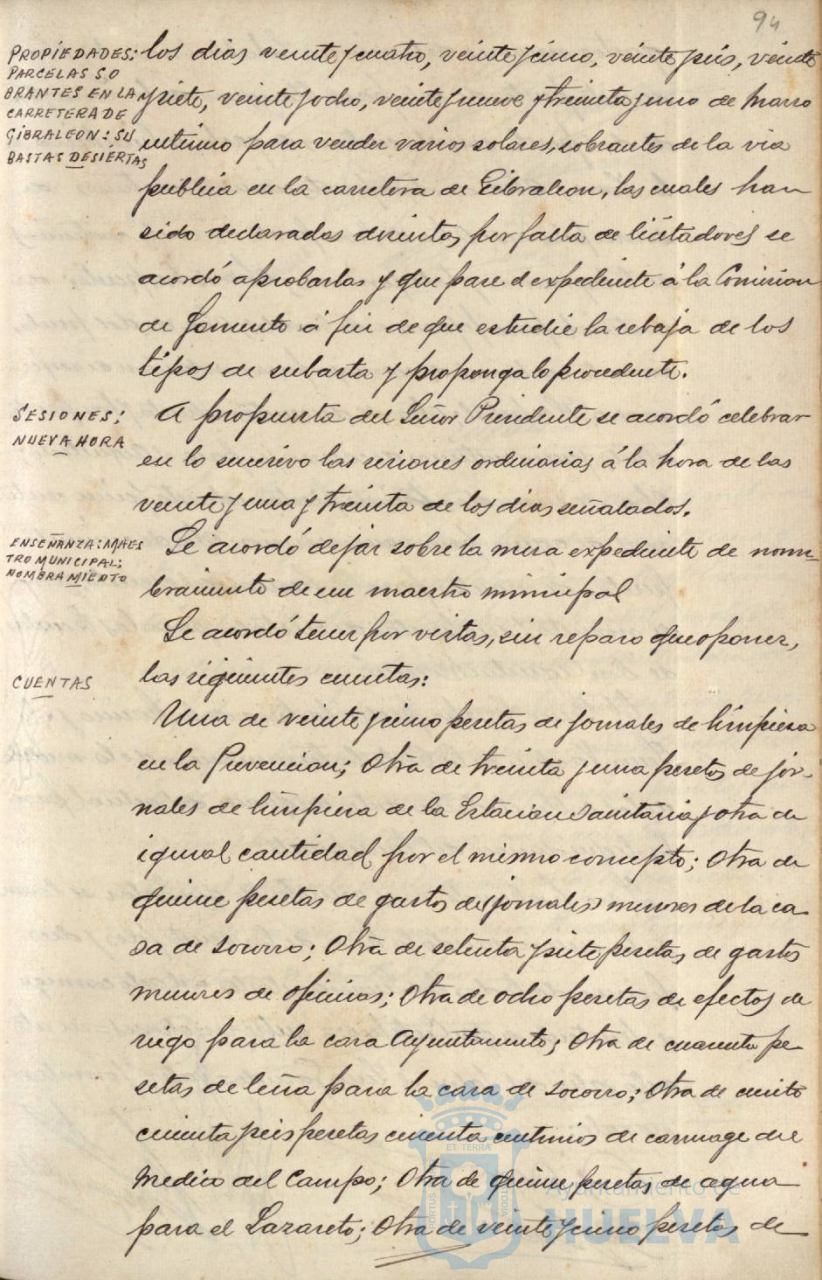 94
PROPIEDADES:
PARCELAS SO
BRANTES EN LA
CARRETERA DE
GIBRALEON: SU
BASTAS DESIERTAS
los dias veinte y cuatro, veinte y cinco, veinte y seis, veinte
y siete, veinte y ocho, veinte y nueve y treinta y uno de Marzo
ultimo para vender varios solares, sobrantes de la via
publica en la carretera de Gibraleon, las cuales han
sido declaradas desiertas por falta de licitadores se
acordó aprobarlas y que pase el expediente á la Comision
de Fomento á fin de que estudie la rebaja de los
tipos de subasta y proponga lo procedente.
SESIONES:
NUEVA HORA
A propuesta del Señor Presidente se acordó celebrar
en lo sucesivo las sesiones ordinarias á la hora de las
veinte y una y treinta de los dias señalados.
ENSEÑANZA: MAES
TRO MUNICIPAL:
NOMBRAMIENTO
Se acordó dejar sobre la mesa expediente de nom-
bramiento de un maestro municipal
Se acordó tener por vistas, sin reparo que oponer,
CUENTAS
las siguientes cuentas:
Una de veinte y cinco pesetas de jornales de limpieza
en la Prevencion; Otra de treinta y una pesetas de jor-
nales de limpieza de la Estacion Sanitaria y otra de
igual cantidad por el mismo concepto; Otra de
quince pesetas de gastos de (jornales) menores de la ca
sa de socorro; Otra de setenta y siete pesetas de gastos
menores de oficinas; Otra de ocho pesetas de efectos de
riego para la casa Ayuntamiento; Otra de cuarenta pe
setas de leña para la casa de socorro; Otra de ciento
cincuenta y seis pesetas cincuenta centimos de carruage del
Medico del Campo; Otra de quince pesetas de agua
para el Lazareto; Otra de veinte y cinco pesetas de
Ayuntamiento de
HUELVA
ET TERRA